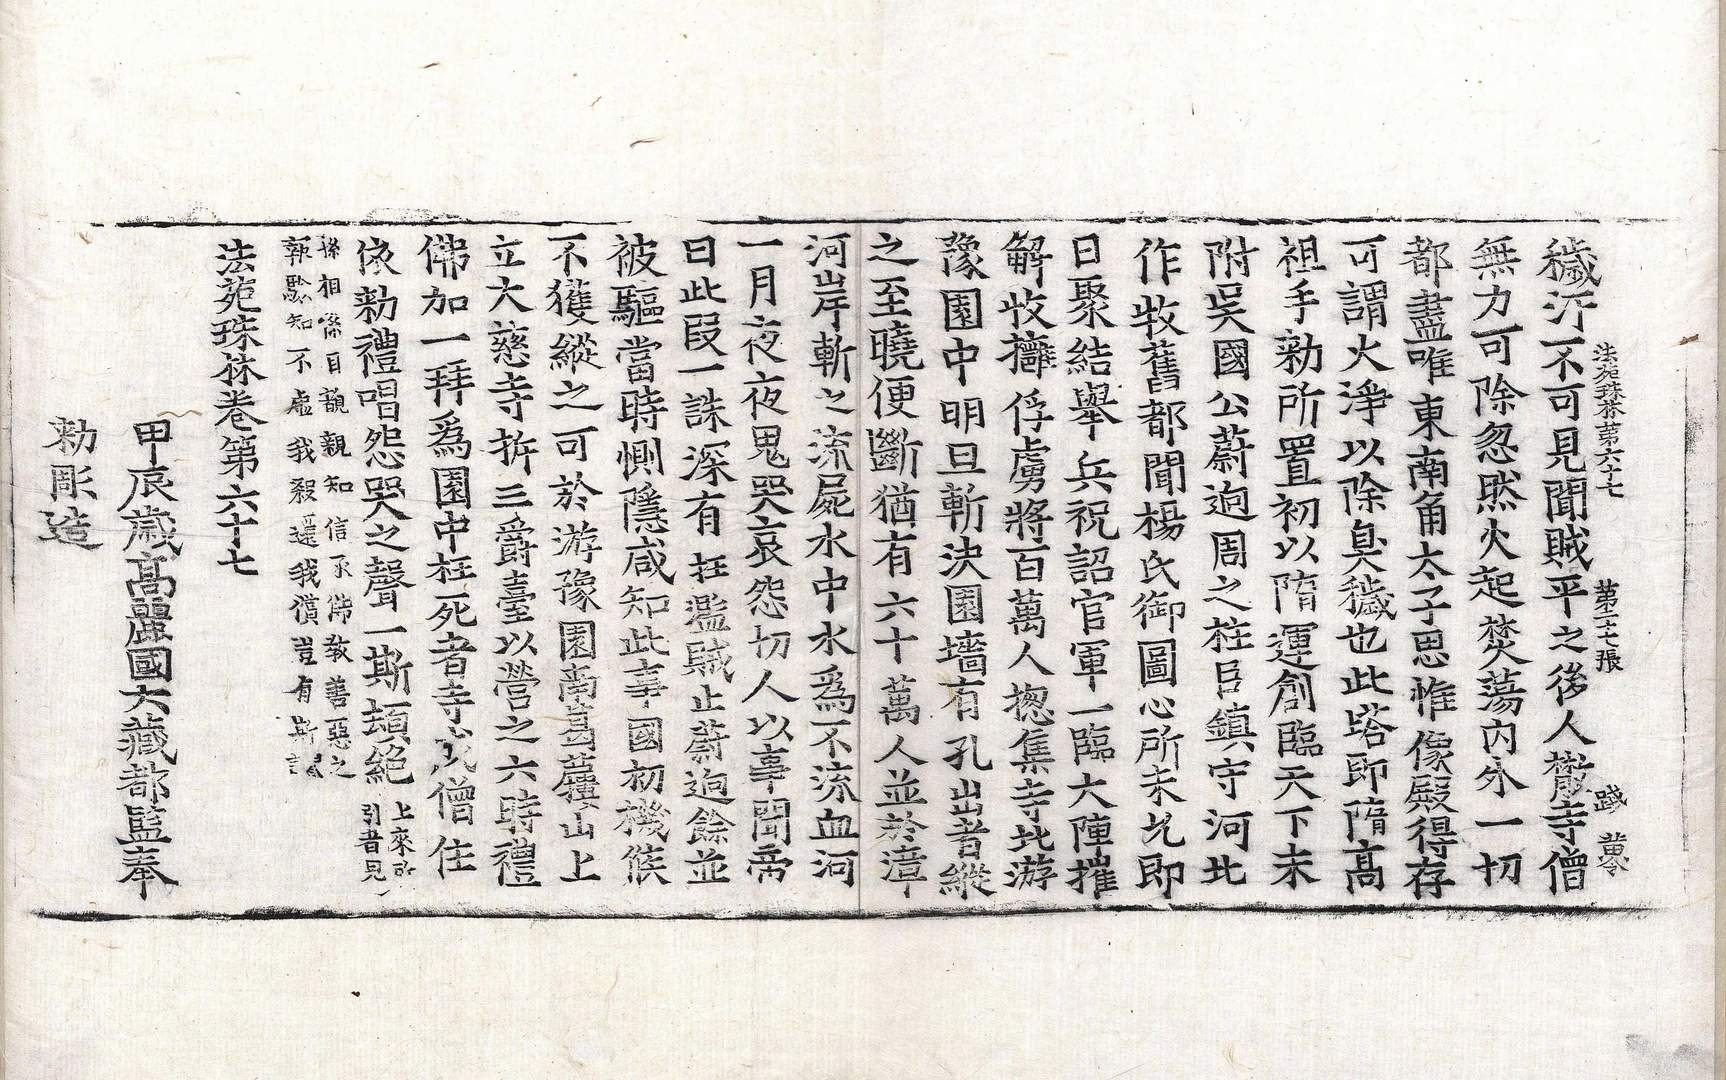 法苑珠林第六十七 第二七張 踐 黄令
穢汙不可見聞賊平之後人散寺僧
無力可除忽然火起焚蕩內外一切
都盡唯東南角太子思惟像殿得存
可謂火淨以除臭穢也此塔即隋高
祖手勑所置初以隋運創臨天下未
附吳國公蔚迥周之柱臣鎮守河北
作牧舊都聞楊氏御圖心所未允即
日聚結舉兵抗詔官軍一臨大陣摧
解收擒俘虜將百萬人揔集寺北游
豫園中明旦斬決園墻有孔出者縱
之至曉便斷猶有六十萬人並於漳
河岸斬之流屍水中水爲不流血河
一月夜夜鬼哭哀怨切人以事聞帝
曰此段一誅深有枉濫賊止蔚迥餘並
被驅當時惻隱咸知此事國初機候
不獲縱之可於游豫園南葛蔞山上
立大慈寺拆三爵臺以營之六時禮
佛加一拜爲園中枉死者寺成僧住
依勑禮唱怨哭之聲一斯頓絕 上來所
引者見
條相條目覩親知信承佛教善惡之
報驗知不虛我殺還我償豈有斯謬
法苑珠林卷第六十七
甲辰歲高麗國大藏都監奉
勑彫造